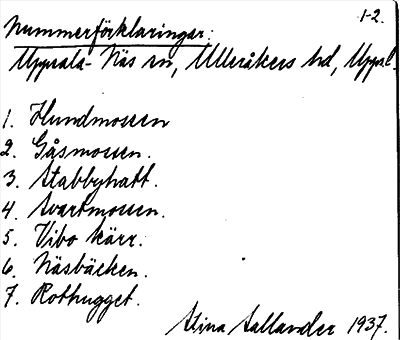 1-2.
Nummerförklaringar:
Uppsala-Näs sn, Ulleråkers hd, Uppsal.
1. Hundmossen
2. Gåsmossen.
3. Stabbyhatt.
4. Svartmossen.
5. Vibo kärr.
6. Näsbäcken.
7. Rothugget.
Stina Sallander 1937.